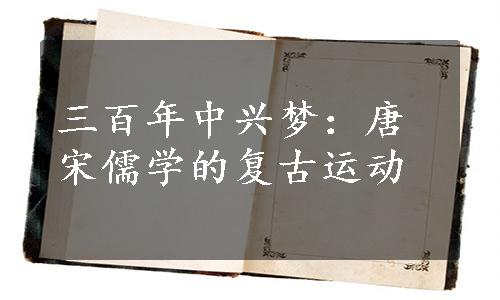 三百年中兴梦：唐
宋儒学的复古运动